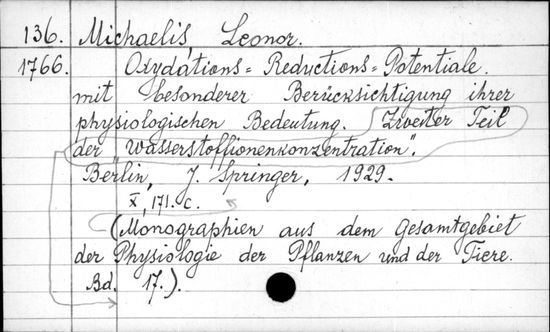 136. Michaelis, Leonor.
1766. Oxydations=Reductions=Potentiale.
mit besonderer Berücksichtigung ihrer
physiologischen Bedeutung. Zweiter Teil
der "Wasserstoffionenkonzentration".
Berlin, J. Springer, 1929.
X, 171. c.
(Monographien aus dem Gesamtgebiet
der Physiologie der Pflanzen und der Tiere.
Bd. 17.).